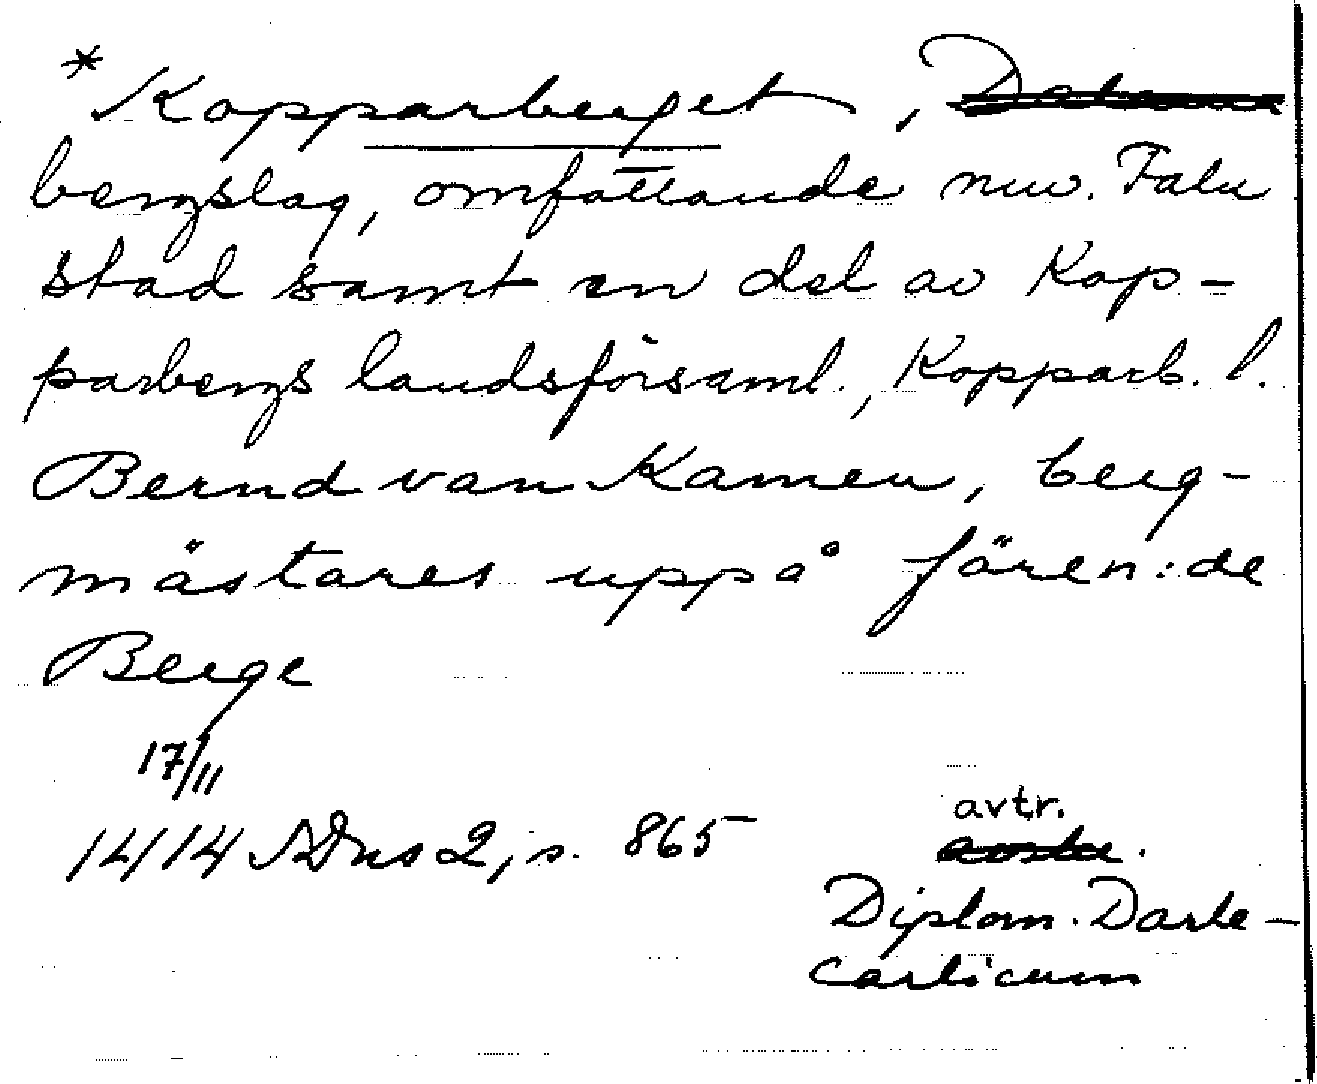 *Kopparberget,
bergslag, omfattande nuv. Falu
stad samt en del av Kop-
parbergs landsförsaml., Kopparb. l.
Bernd van Kamen, berg-
mästares uppå fåren:de
Berge
17/11
1414 SDns 2, s. 865
avtr.
Diplom. Darle-
carlicum